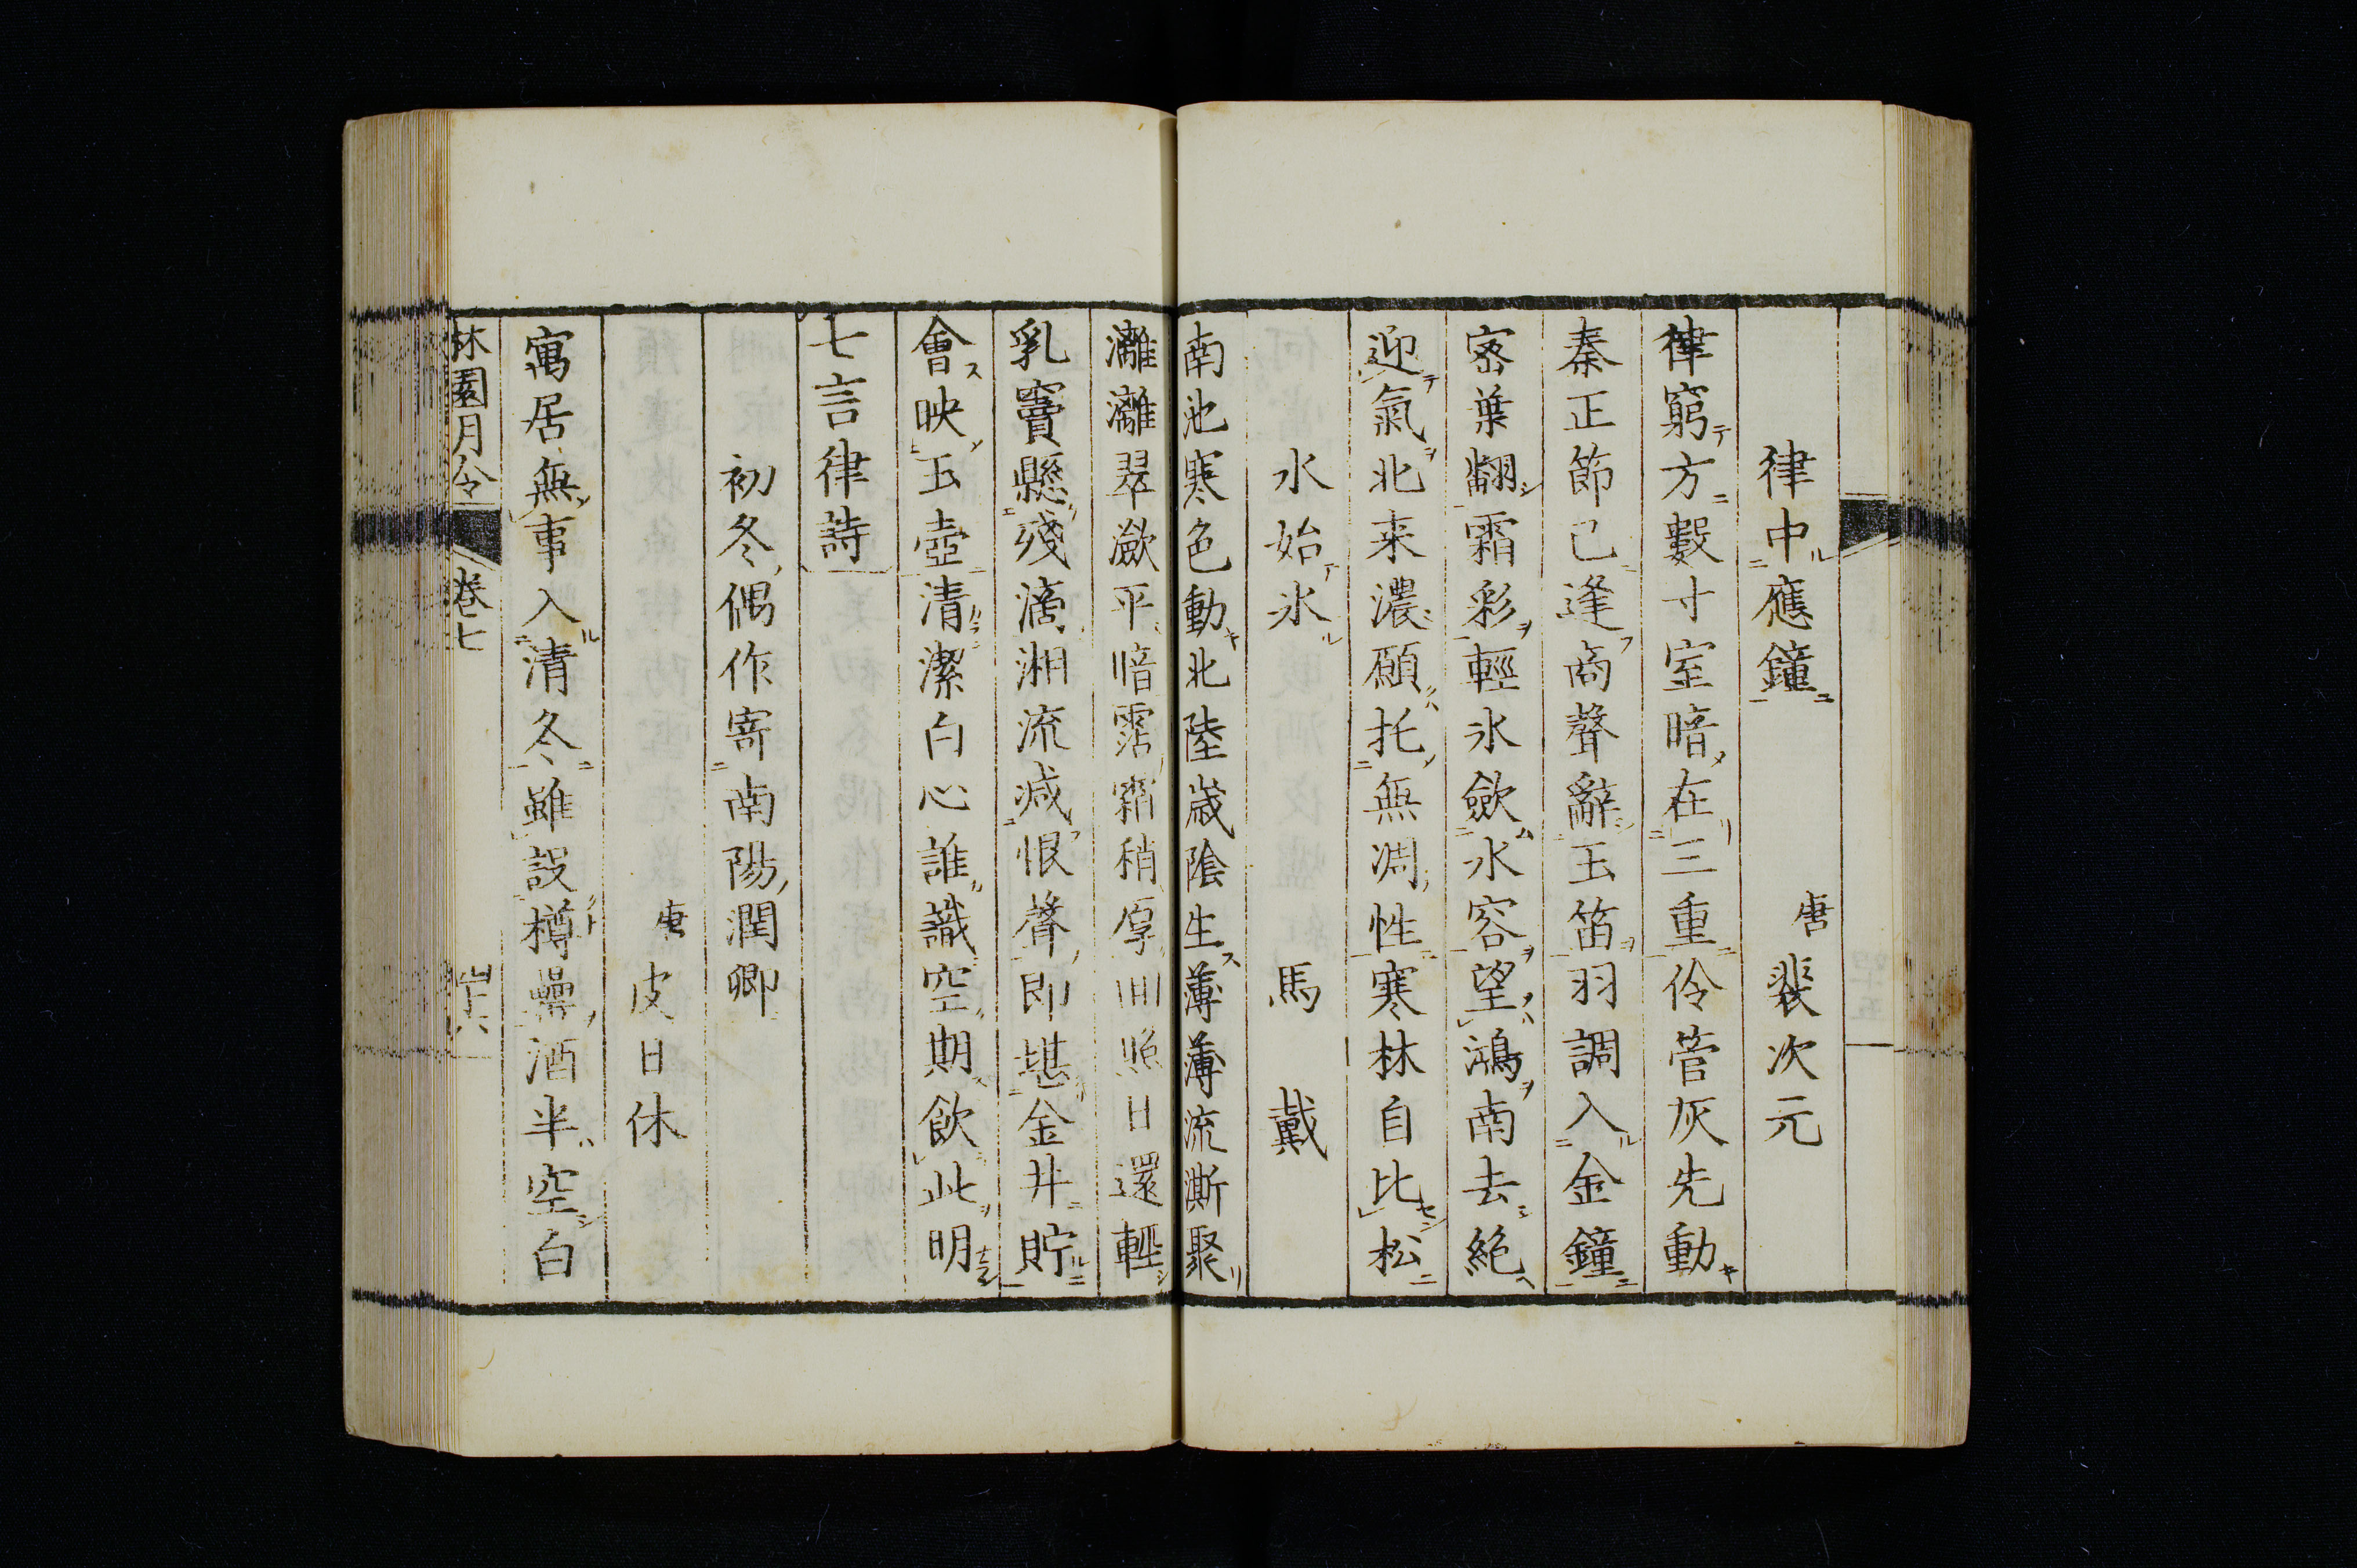 律中應鐘　唐　裴次元
律窮方數寸室暗在三重伶管灰先動
秦正節已逢商聲辭玉笛羽調入金鐘
密葉翻霜彩輕氷斂水容望鴻南去絶
迎氣北来濃願托無凋性寒林自比松
水始氷　馬戴
南池寒色動北陸歳陰生薄薄流澌聚
灕灕翠瀲平暗霑霜稍厚囬照日還輕
乳竇懸殘滴湘流减恨聲即堪金井貯
會映玉壺清潔白心誰識空期飲此明
七言律詩
初冬偶作寄南陽潤卿
唐　皮日休
寓居無事入清冬雖設樽罍酒半空白
林園月令　卷七